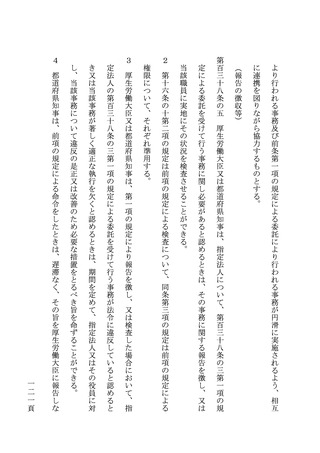 より行われる事務及び前条第一項の規定による委託により行われる事務が円滑に実施されるよう、相互
に連携を図りながら協力するものとする。
（報告の徴収等）
第百三十八条の五　厚生労働大臣又は都道府県知事は、指定法人について、第百三十八条の三第一項の規
定による委託を受けて行う事務に関し必要があると認めるときは、その事務に関する報告を徴し、又は
当該職員に実地にその状況を検査させることができる。
２　第十六条の十第二項の規定は前項の規定による検査について、同条第三項の規定は前項の規定による
権限について、それぞれ準用する。
３　厚生労働大臣又は都道府県知事は、第一項の規定により報告を徴し、又は検査した場合において、指
定法人の第百三十八条の三第一項の規定による委託を受けて行う事務が法令に違反していると認めると
き又は当該事務が著しく適正な執行を欠くと認めるときは、期間を定めて、指定法人又はその役員に対
し、当該事務について違反の是正又は改善のため必要な措置をとるべき旨を命ずることができる。
４　都道府県知事は、前項の規定による命令をしたときは、遅滞なく、その旨を厚生労働大臣に報告しな
一二一頁